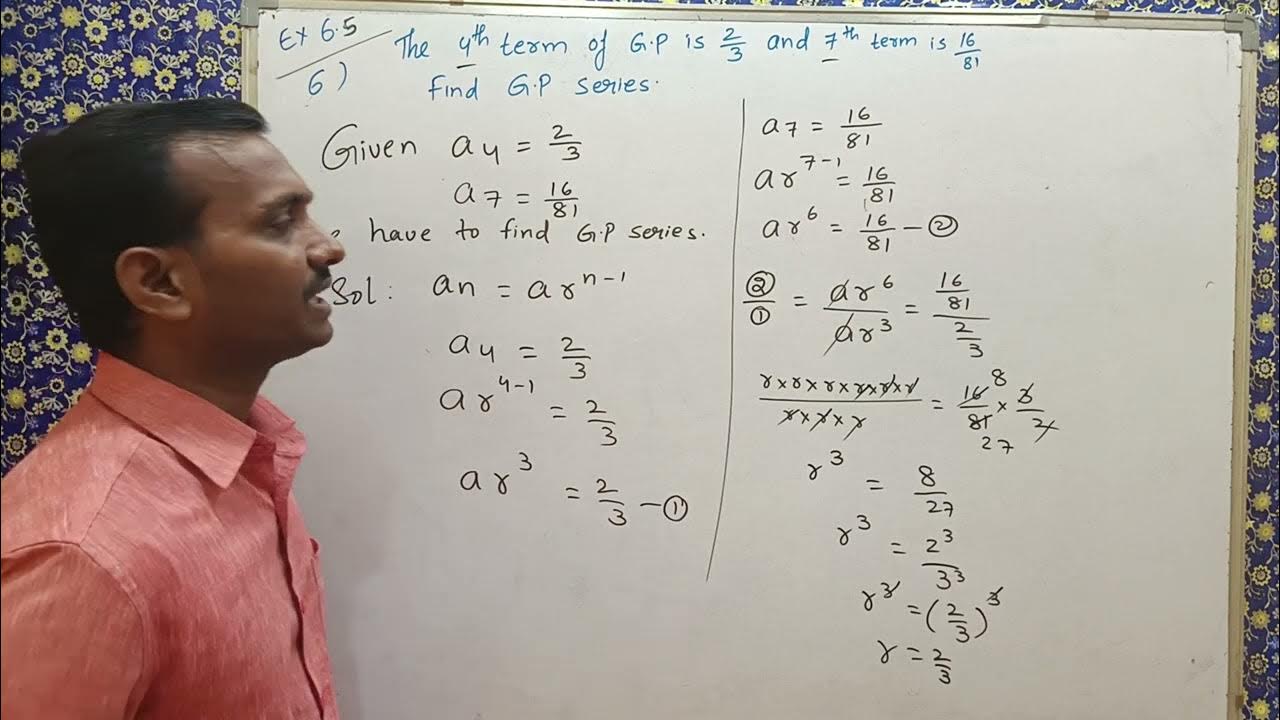 Ex 6.5
6)
The 4th term of G.P is 2/3 and 7th term is 16/81
Find G.P series.
Given a4 = 2/3
a7 = 16/81
have to find G.P series.
Sol: an = ar^n-1
a4 = 2/3
ar^4-1 = 2/3
ar^3 = 2/3 — ①
a7 = 16/81
ar^7-1 = 16/81
ar^6 = 16/81 — ②
②/① = ar^6/ar^3 = 16/81 / 2/3
r×r×r×r×r×r / r×r×r = 16/81 × 3/2 8 27
r^3 = 8/27
r^3 = 2^3/3^3
r^3 = (2/3)^3
r = 2/3